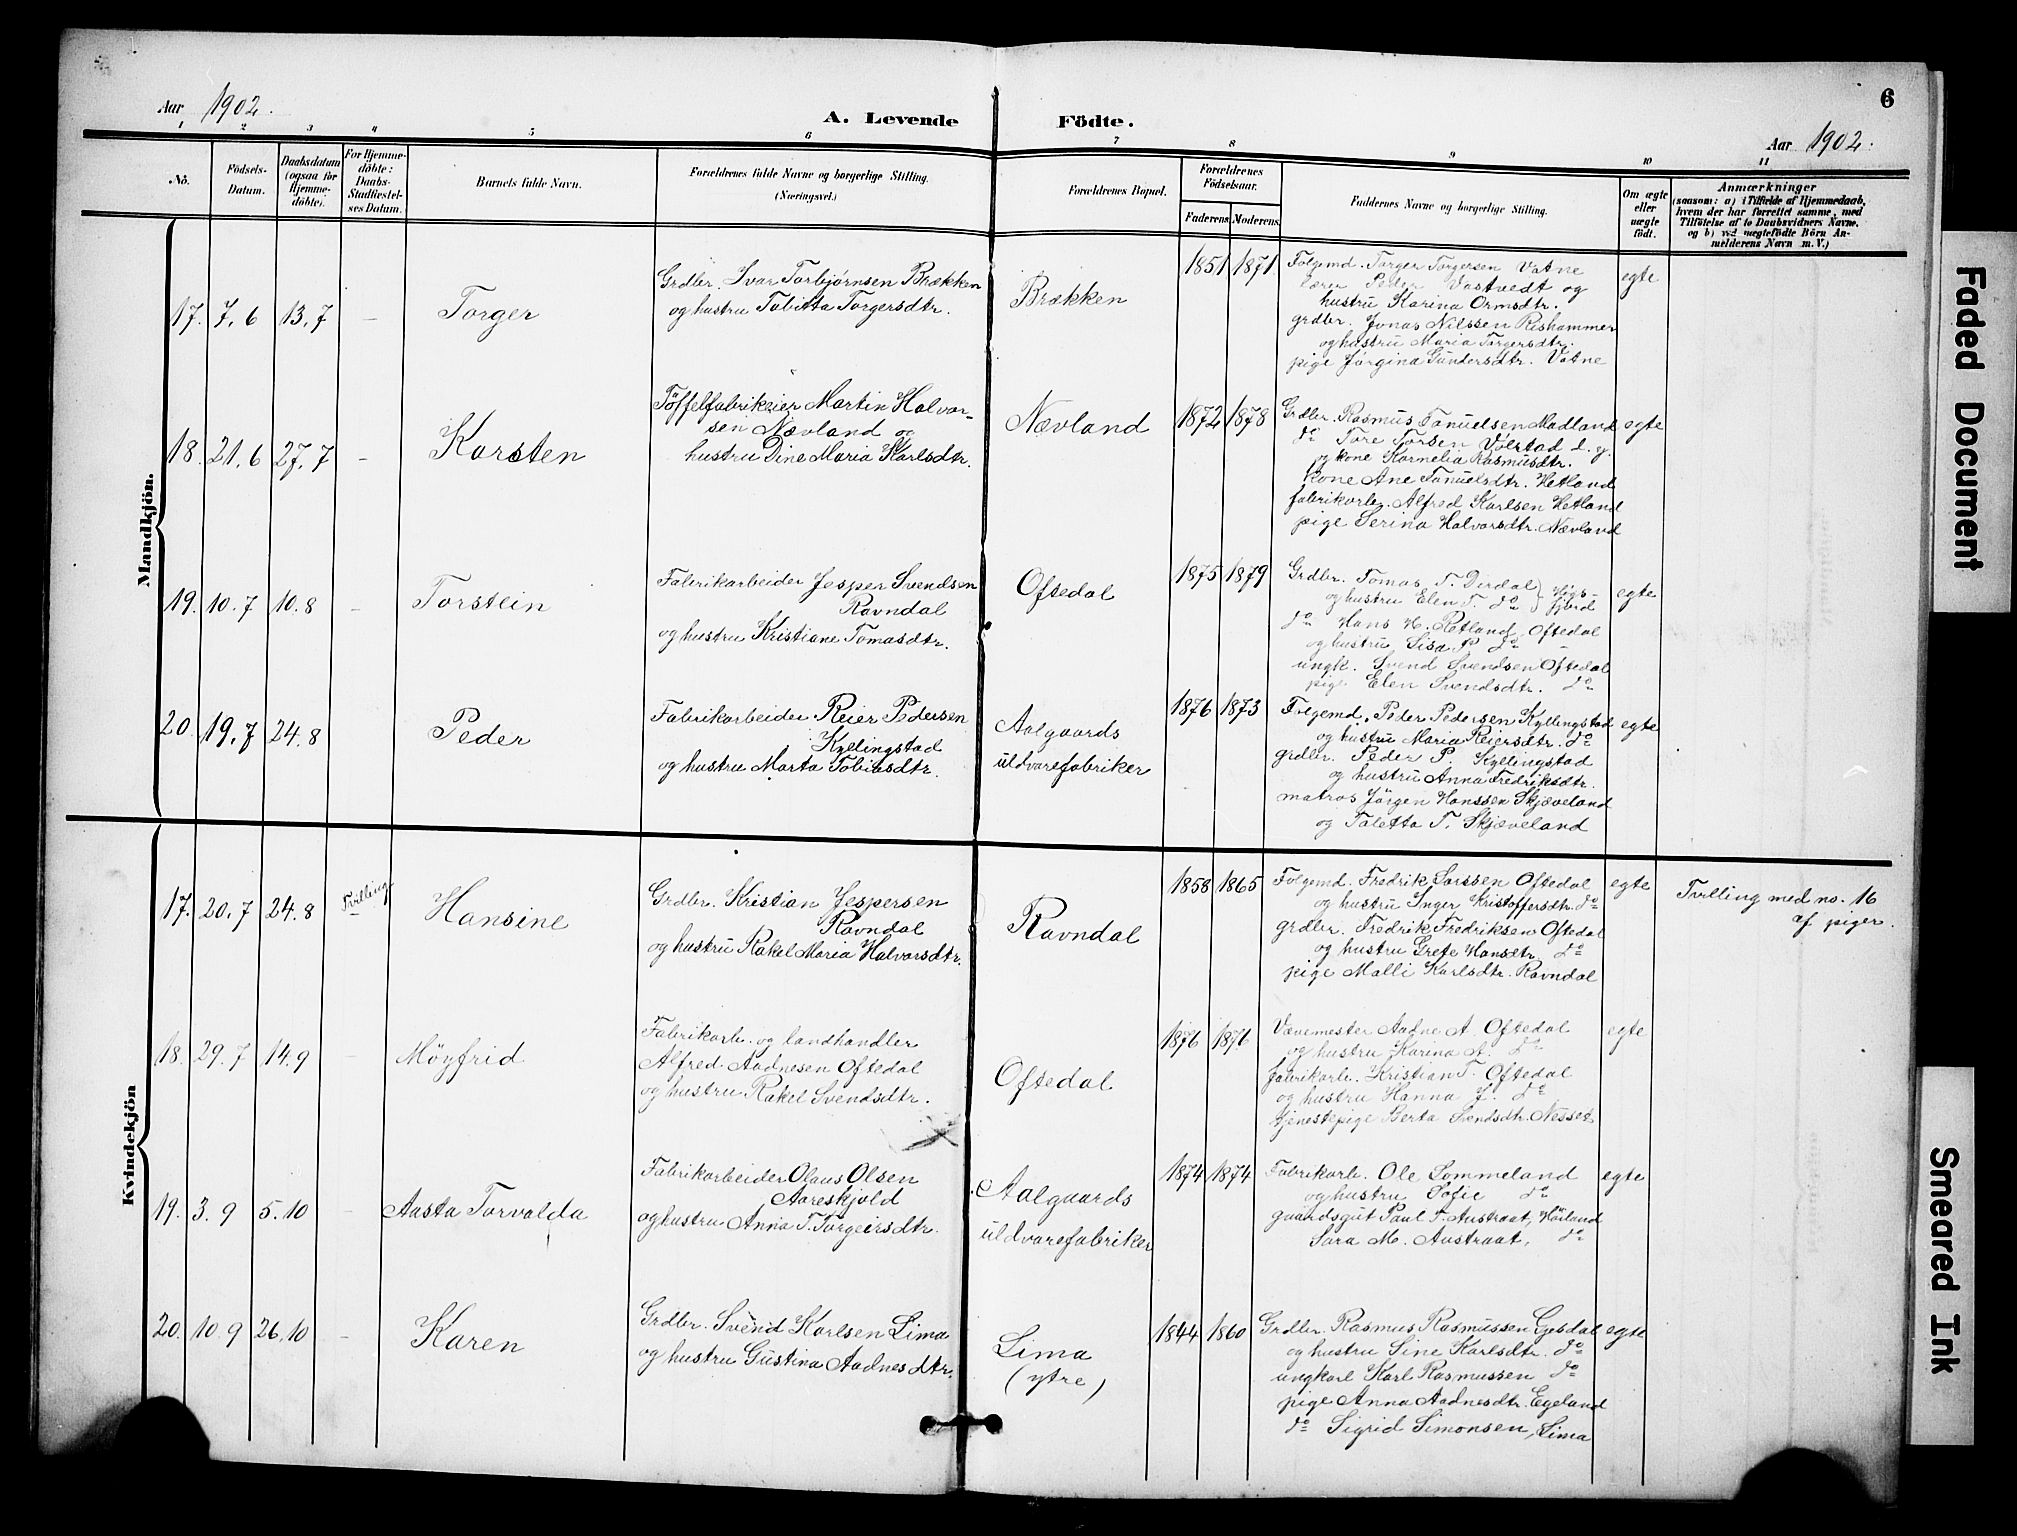 6
Aar 1902.
A. Levende Födte.
Aar 1902.
1 2 3 4 5 6 7 8 9 10 11
No.
Födsels-
Datum.
Daabsdatum
(ogsaa for
Hjemme-
döbte).
For Hjemme-
döbte:
Daabs-
Stadfæstel-
ses Datum.
Barnets fulde Navn.
Forældrenes fulde Navne og borgerlige Stilling.
(Næringsvei.)
Forældrenes Bopæl.
Forældrenes
Födselsaar.
Faderens. Moderens.
Faddernes Navne og borgerlige Stilling.
Om ægte
eller
uægte
født.
Anmærkninger
(saasom: a) i Tilfælde af Hjemmedaab,
hvem der har forrettet samme, med
Tilføielse af to Daabsvidners Navne.
og b) ved uægtefödte Börn An-
melderens Navn m. V.)
Mandkjön.
17. 7.6 13.7 - Torger
Grdbr. Ivar Torbjørnsen Brækken
og hustru Tabitta Torgersdtr.
Brækken
1851 1871
Folgemd. Torger Torgersen Vatne
lærer Peder Vastvedt og
hustru Karina Ormsdtr.
grdbr. Jonas Nilssen Rishammer
og hustru Maria Torgersdtr.
pige Jørgina Gundersdtr. Vatne
egte
18. 21.6 27.7 - Karsten
Töffelfabrikeier Martin Halvor-
sen Nævland og
hustru Dine Maria Karlsdtr.
Nævland
1872 1878
Grdbr. Rasmus Tanuelsen Madland
do Tore Torsen Völstad d. y.
og kone Kornelia Rasmusdtr.
kone Ane Tanuelsdtr. Hetland
fabrikarb. Alfred Karlsen Hetland
pige Serina Halvorsdtr. Nævland
egte
19. 10.7 10.8 - Torstein
Fabrikarbeider Jesper Svendsen
Ravndal
og hustru Kristiane Tomasdtr.
Oftedal
1875 1879
Grdbr. Tomas T. Dirdal } Högs-
og hustru Elen T. do } fjord
do Hans H. Rötland, Oftedal
og hustru Sisa P. do -
ungk. Svend Svendsen Oftedal
pige Elen Svendsdtr. do
egte
20. 19.7 24.8 Peder
Fabrikarbeider Reier Pedersen
Kyllingstad
og hustru Marta Tobiasdtr.
Aalgaards
uldvarefabriker
1876 1873
Folgemd. Peder Pedersen Kyllingstad
og hustru Maria Reiersdtr. do
grdbr. Peder P. Kyllingstad
og hustru Anna Fredriksdtr.
matros Jörgen Hanssen Skjæveland
og Taletta T. Skjæveland
egte
Kvindekjön
17. 20.7 24.8 Tvilling Hansine
Grdbr. Kristian Jespersen
Ravndal
og hustru Rakel Maria Halvorsdtr.
Ravndal
1858 1865
Folgemd. Fredrik Larssen Oftedal
og hustru Inger Kristoffersdtr. do
grdbr. Fredrik Fredriksen Oftedal
og hustru Grete Hansdtr. do
pige Malli Karlsdtr. Ravndal
egte
Tvilling med no. 16
af piger.
18. 29.7 14.9 - Möyfrid
Fabrikarb. og landhandler
Alfred Aadnesen Oftedal
og hustru Rakel Svendsdtr.
Oftedal
1876 1876
Vævemester Aadne A. Oftedal
og hustru Karina A. do
fabrikarb. Kristian T. Oftedal
og hustru Hanna J. do
tjenestepige Berta Svendsdtr. Nesset
egte
19. 3.9 5.10 - Aasta Torvalda
Fabrikarbeider Olaus Olsen
Aareskjold
og hustru Anna T. Torgersdtr.
Aalgaards
uldvarefabriker
1874 1874
Fabrikarb. Ole Sommeland
og hustru Sofie do
gaardsgut Paul T. Austraat, Höiland
Sara M. Austraat, do
egte
20. 10.9 26.10 - Karen
Grdbr. Svend Karlsen Lima
og hustru Gustina Aadnesdtr.
Lima
(ytre)
1844 1860
Grdbr. Rasmus Rasmussen Gjesdal
og hustru Sine Karlsdtr. do
ungkarl Karl Rasmussen do
pige Anna Aadnesdtr. Egeland
do Sigrid Simonsen, Lima
egte
Faded Document
Smeared Ink